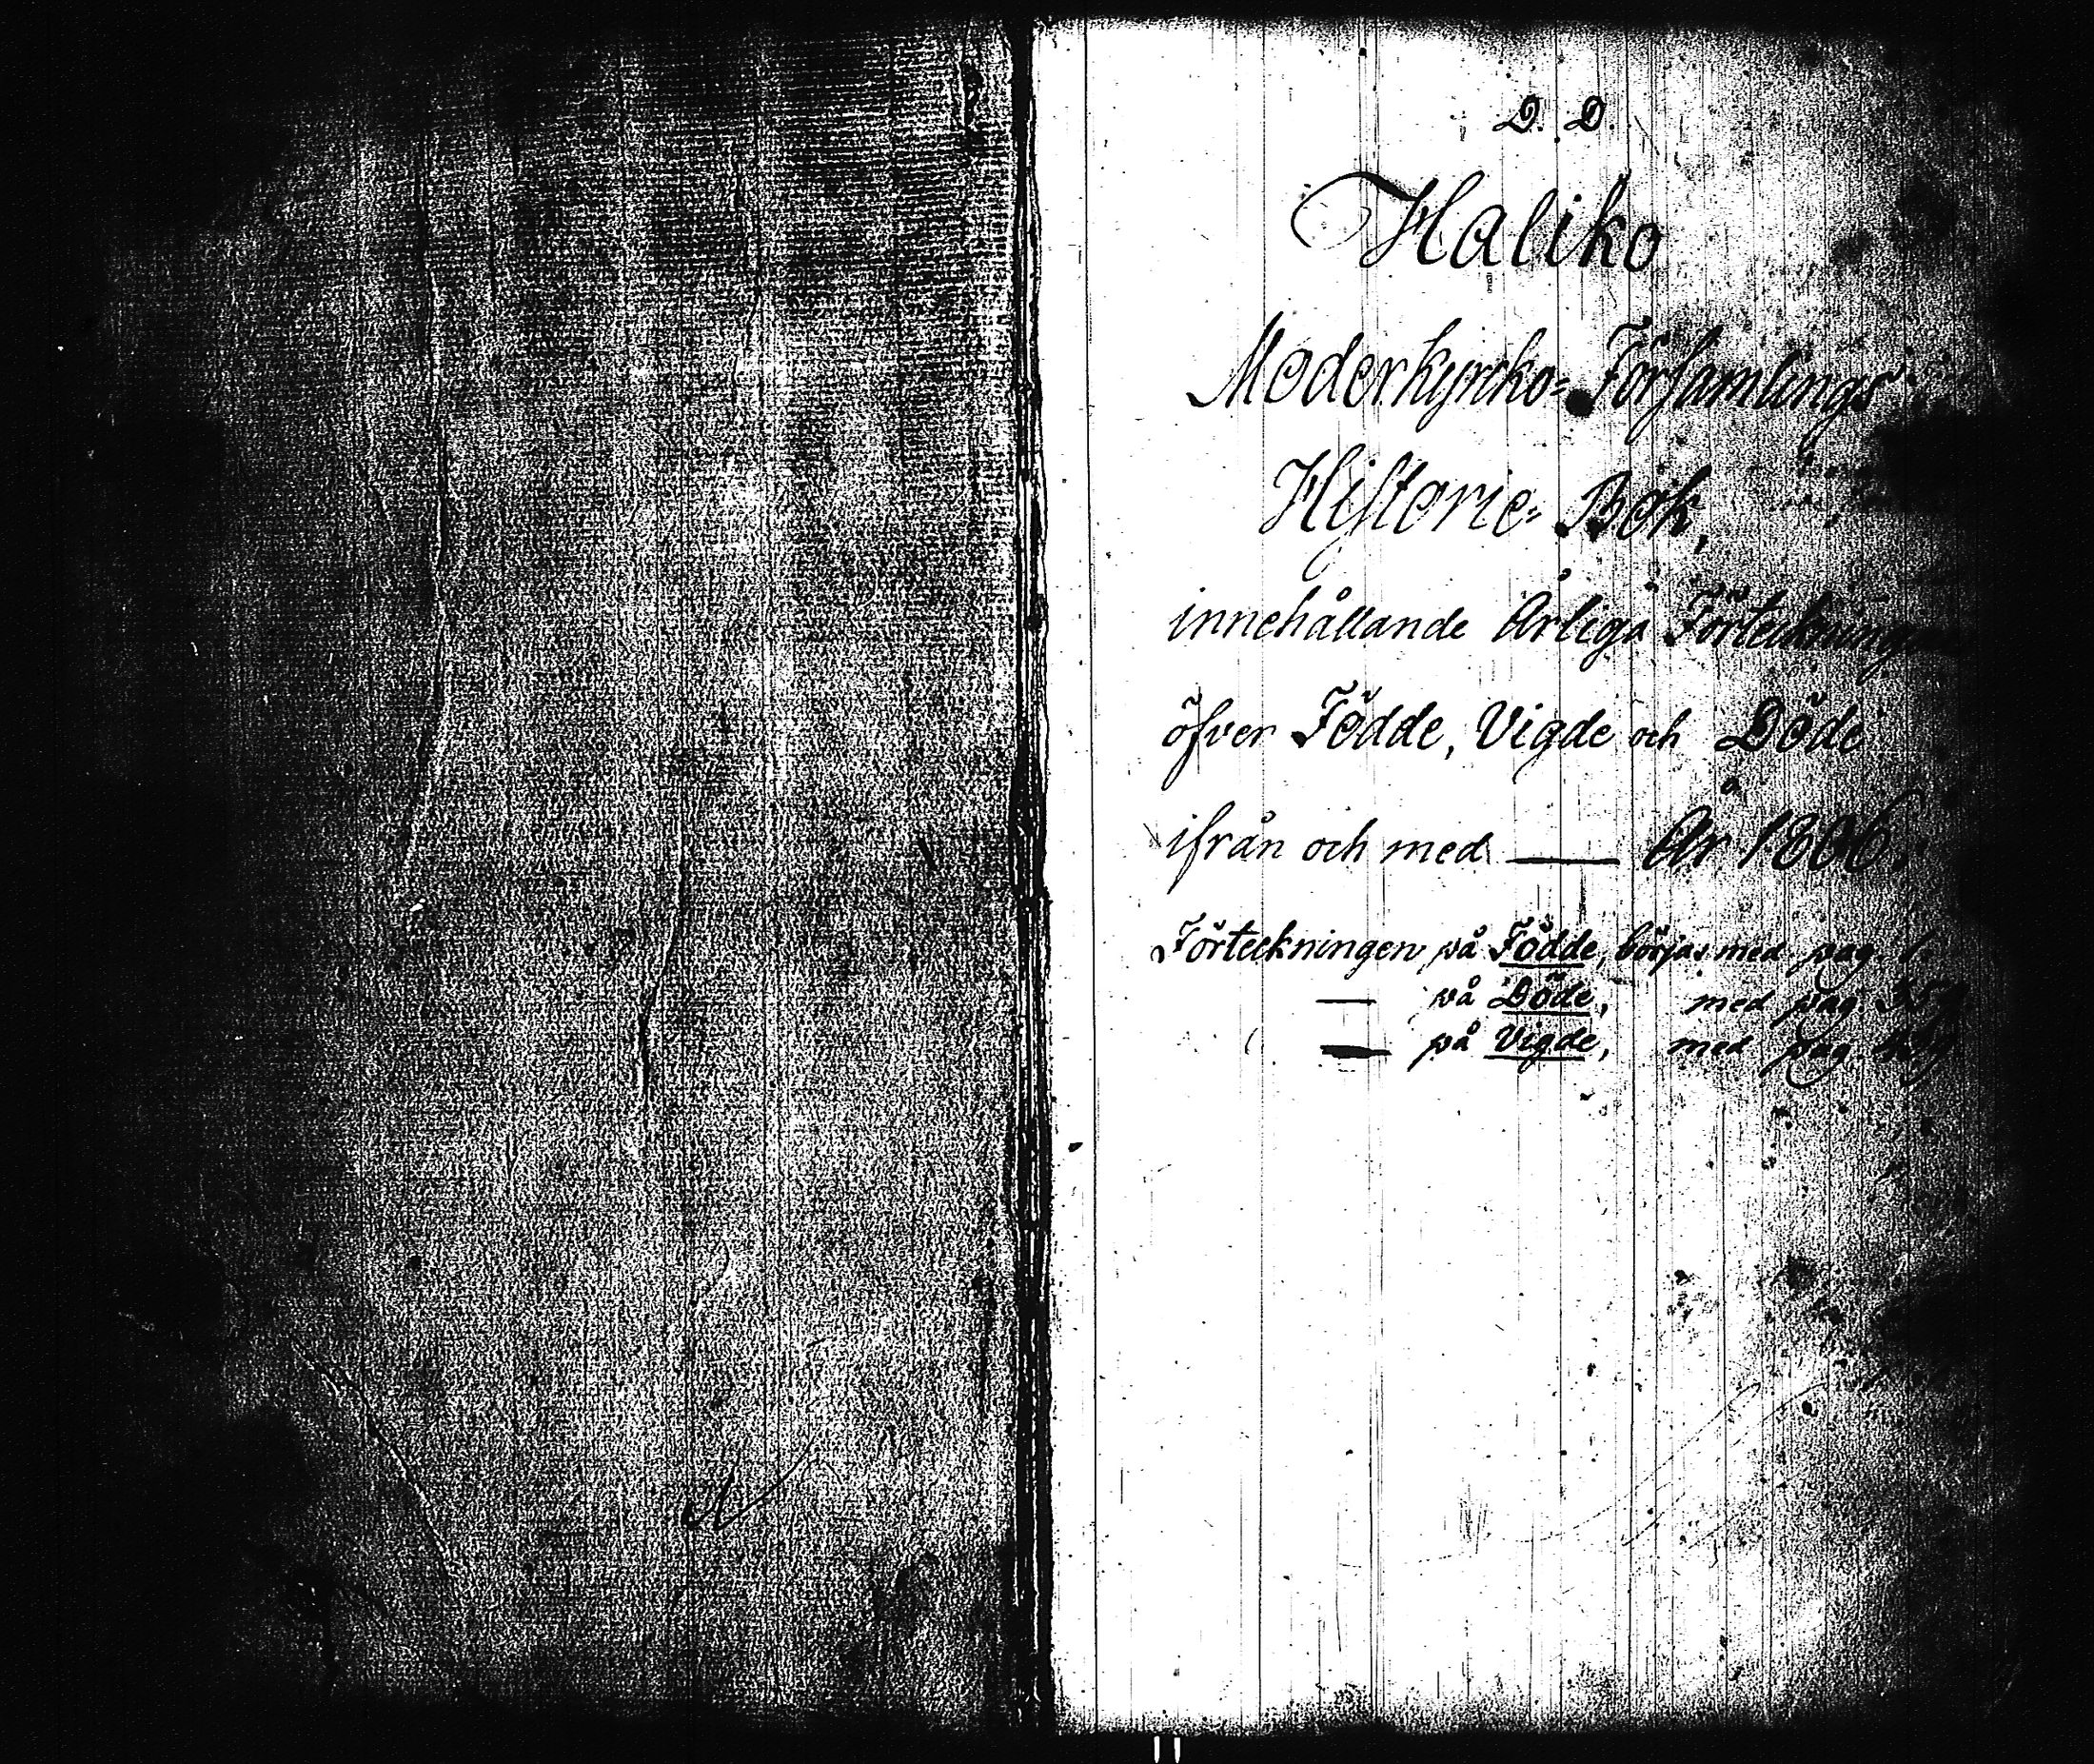 D. D.
Haliko
Moderkyrko-Församlings
Historie-Bok,
innehållande Årliga Förteckningar
öfver Födde, Vigde och Döde
ifrån och med — År 1806.
Förteckningen på Födde, börjas med pag. 1.
— på Döde, med pag.
— på Vigde, med pag.